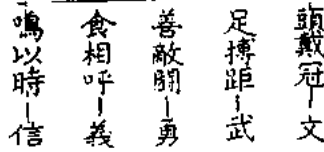 頭戴冠－文
足搏距－武
善敵鬭－勇
食相呼－義
鳴以時－信